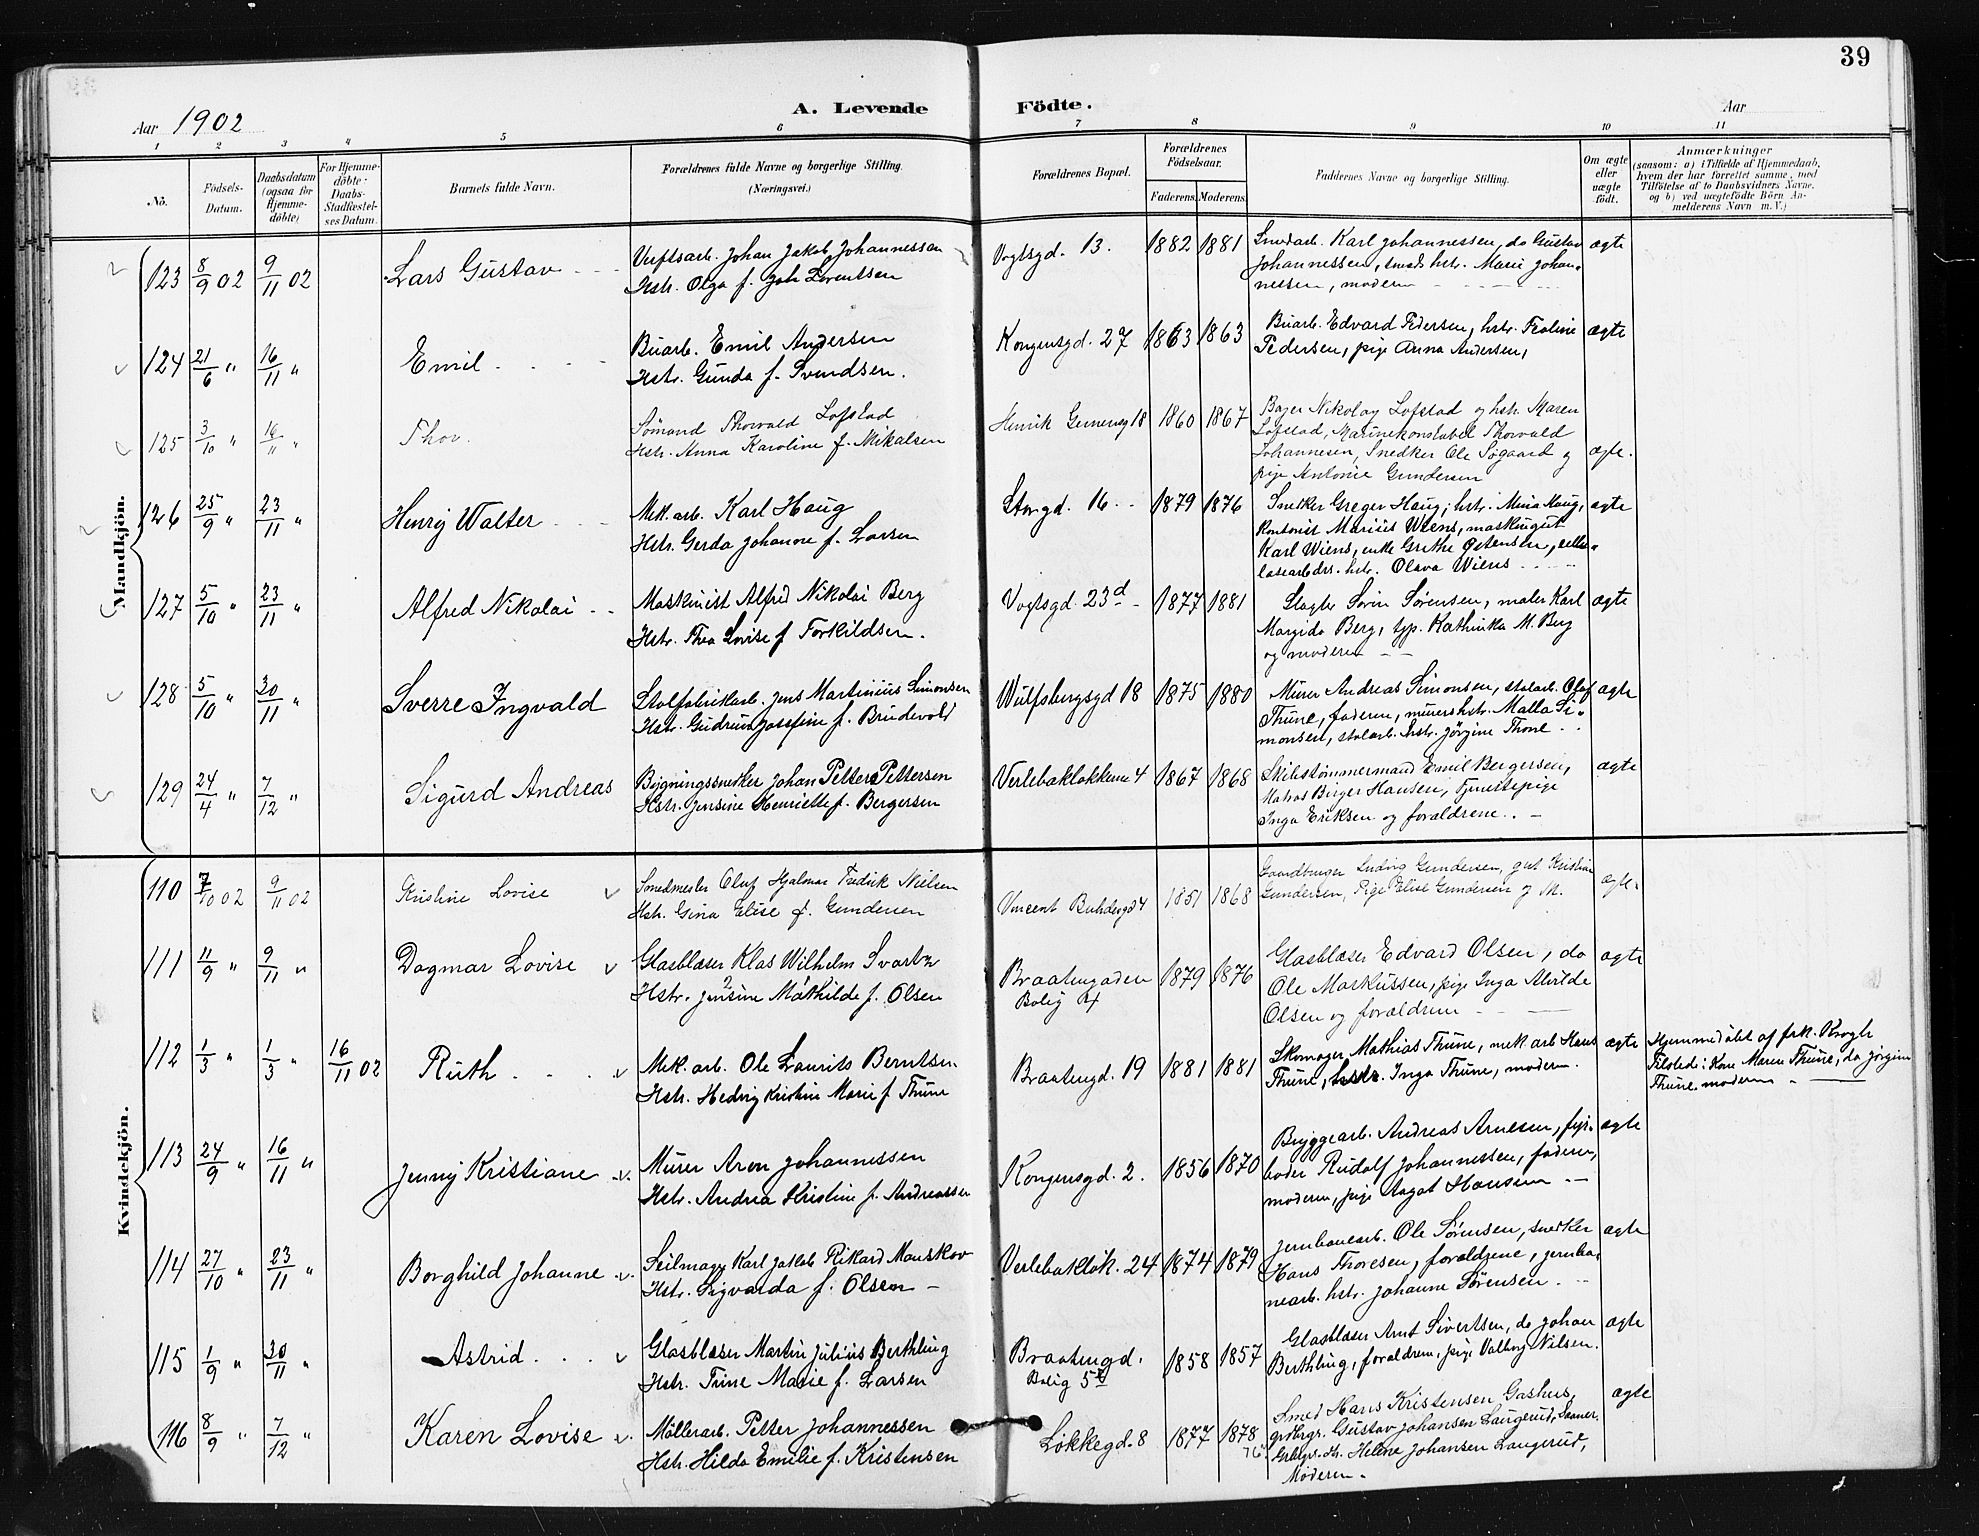 39
A. Levende Födte.
Aar 1902
Aar
1 2 3 4 5 6 7 8 9 10 11
No.
Födsels-Datum.
Daabsdatum (ogsaa for Hjemme-döbte)
For Hjemme-döbte: Daabs-Stadfæstel-ses Datum.
Barnets fulde Navn.
Forældrenes fulde Navne og borgerlige Stilling. (Næringsvei.)
Forældrenes Bopæl.
Forældrenes Födselsaar.
Faderens.
Moderens.
Faddernes Navne og borgerlige Stilling.
Om ægte eller uægte födt.
Anmærkninger
(saasom: a) i Tilfælde af Hjemmedaab,
hvem der har forrettet samme, med
Tilföielse af to Daabsvidners Navne,
og b) ved uægtefödte Börn An-
melderens Navn m. V.)
Mandkjön.
123 8/9 02 9/11 02 Lars Gustav
Verftsarb. Johan Jakob Johannessen
Hstr. Olga f. Lorentsen
Vogtsgd. 13. 1882 1881
Smedarb. Karl Johannessen, do Gustav
Johannessen, smeds hstr. Marie Johan-
nessen, moderen
ægte
124 21/6 " 16/11 " Emil
Buarb. Emil Andersen
Hstr. Gunda f. Svendsen.
Kongensgd. 27 1863 1863
Buarb. Edvard Pedersen, hstr.
Pedersen, pige Anna Andersen,
ægte
125 3/10 " 16/11 " Thor.
Sømand Thorvald Lofstad
Hstr. Anna Karoline f. Mikalsen
Henrik 18 1860 1867
Bager Nikolay Lofstad og hstr. Maren
Lofstad, Marinekonstabel Thorvald
Johannesen, Snedker Ole Søgaard og
pige Antonie Gundersen
ægte.
126 25/9 " 23/11 " Henry Walter
Mek. arb. Karl Haug
Hstr. Gerda Johanne f. Larsen
Storgd. 16 1879 1876
Snekker Greger Haug, hstr. Mina Haug,
Kontorist Marius Wiens, maskingut
Karl Wiens, enke Grethe Østensen, cellu-
losearbdrs. hstr. Olava Wiens
ægte
127 5/10 " 23/11 " Alfred Nikolai
Maskinist Alfred Nikolai Berg
Hstr. Thea Lovise f Torkildsen.
Vogtsgd. 23d 1877 1881
Slagter Sørensen, maler Karl
Berg, typ. Kathinka M. Berg
og moderen
ægte
128 5/10 " 30/11 " Sverre Ingvald
Stolfabrikarb. Jens Martinius Simonsen
Hstr. Gudrun Josefine f. Brudevold
Wulfsbergsgd 18 1875 1880
Murer Andreas Simonsen, stolarb. Olaf
Thune, faderen, murers hstr. Malla Si-
monsen, stolarb. hstr. Jørgine Thone
ægte
129 24/4 " 7/12 " Sigurd Andreas
Bygningssnekker Johan Petter Pettersen
Hstr. Jensine Henriette f. Bergersen
Verlebakløkkene 4 1867 1868
Skibstømmermand Emil Bergersen,
Matros Birger Hansen, Tjenestepige
Inga Eriksen og forældrene.
ægte
Kvindekjön.
110 7/10 02 9/11 02 Kristine Lovise
Smedmester Oluf Hjalmar Fredrik Nielsen
Hstr. Gina Elise f. Gundersen
Vincent Buhdesgd 4 1851 1868
Gaardbruger Ludvig Gundersen, gut Kristian
Gundersen, Pige Elise Gundersen og M.
ægte.
111 11/9 " 9/11 " Dagmar Lovise
Glasblæser Klas Wilhelm Svartz
Hstr. Jensine Mathilde f. Olsen
Braatengaden
Bolig 4
1879 1876
Glasblæser Edvard Olsen, do
Ole Markussen, pige Inga Alvilde
Olsen og forældrene
ægte
112 1/3 " 1/3 " 16/11 02 Ruth
Mek. arb. Ole Laurits Berntsen
Hstr. Hedvig Kristine Marie f Thune
Braatengd. 19 1881 1881
Skomager Mathias Thune, mek arb Hans
Thune, hstr. Inga Thune, moderen.
ægte
Hjemmedøbt af frk. Krogh
Tilstede: Kone Maren Thune, do Jørgine
Thune. moderen
113 24/9 " 16/11 " Jenny Kristiane
Murer Aron Johannessen
Hstr. Andrea Kristine f. Andreassen
Kongensgd. 2. 1856 1870
Bryggearb. Andreas Arnesen, fyr-
bøder Rudolf Johannessen, faderen,
moderen, pige Aagot Hansen
ægte
114 27/10 " 23/11 " Borghild Johanne
Seilmager Karl Jakob Rikard Manskov
Hstr. Sigvarda f. Olsen
Verlebakløk. 24 1874 1879
Jernbanearb. Ole Sørensen, snedker
Hans Thoresen, forældrene, jernba-
nearb. hstr. Johanne Sørensen.
ægte
115 1/9 " 30/11 " Astrid
Glasblæser Martin Julius Berthling
Hstr. Trine Marie f. Larsen
Braatengd.
Bolig 5
1858 1857
Glasblæser Arnt Sivertsen, do Johan
Berthling, forældrene, pige Valborg Nilsen.
ægte
116 8/9 " 7/12 " Karen Lovise
Møllerarb. Petter Johannessen
Hstr. Hilda Emilie f. Kristensen
Løkkegd. 8 1877 1878
76.
Smed Hans Kristensen Gashus,
Gustav Johansen Laugerud,
Helene Johansen Laugerud,
Moderen.
ægte